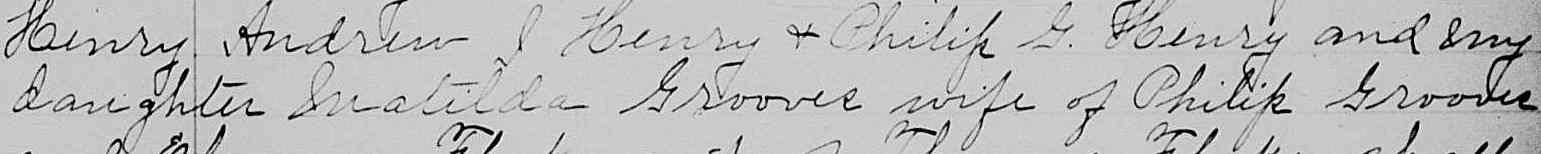 Henry Andrew J Henry & Philip G. Henry and my
daughter Matilda Grooves wife of Philip Grooves